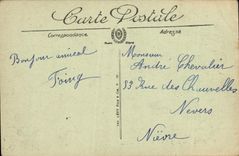 Carte Postale
Correspondance
Adresse
Bonjour amical
Foing
Monsieur
André Chevalier
39 Rue des Chauvelles
Nevers
Nièvre